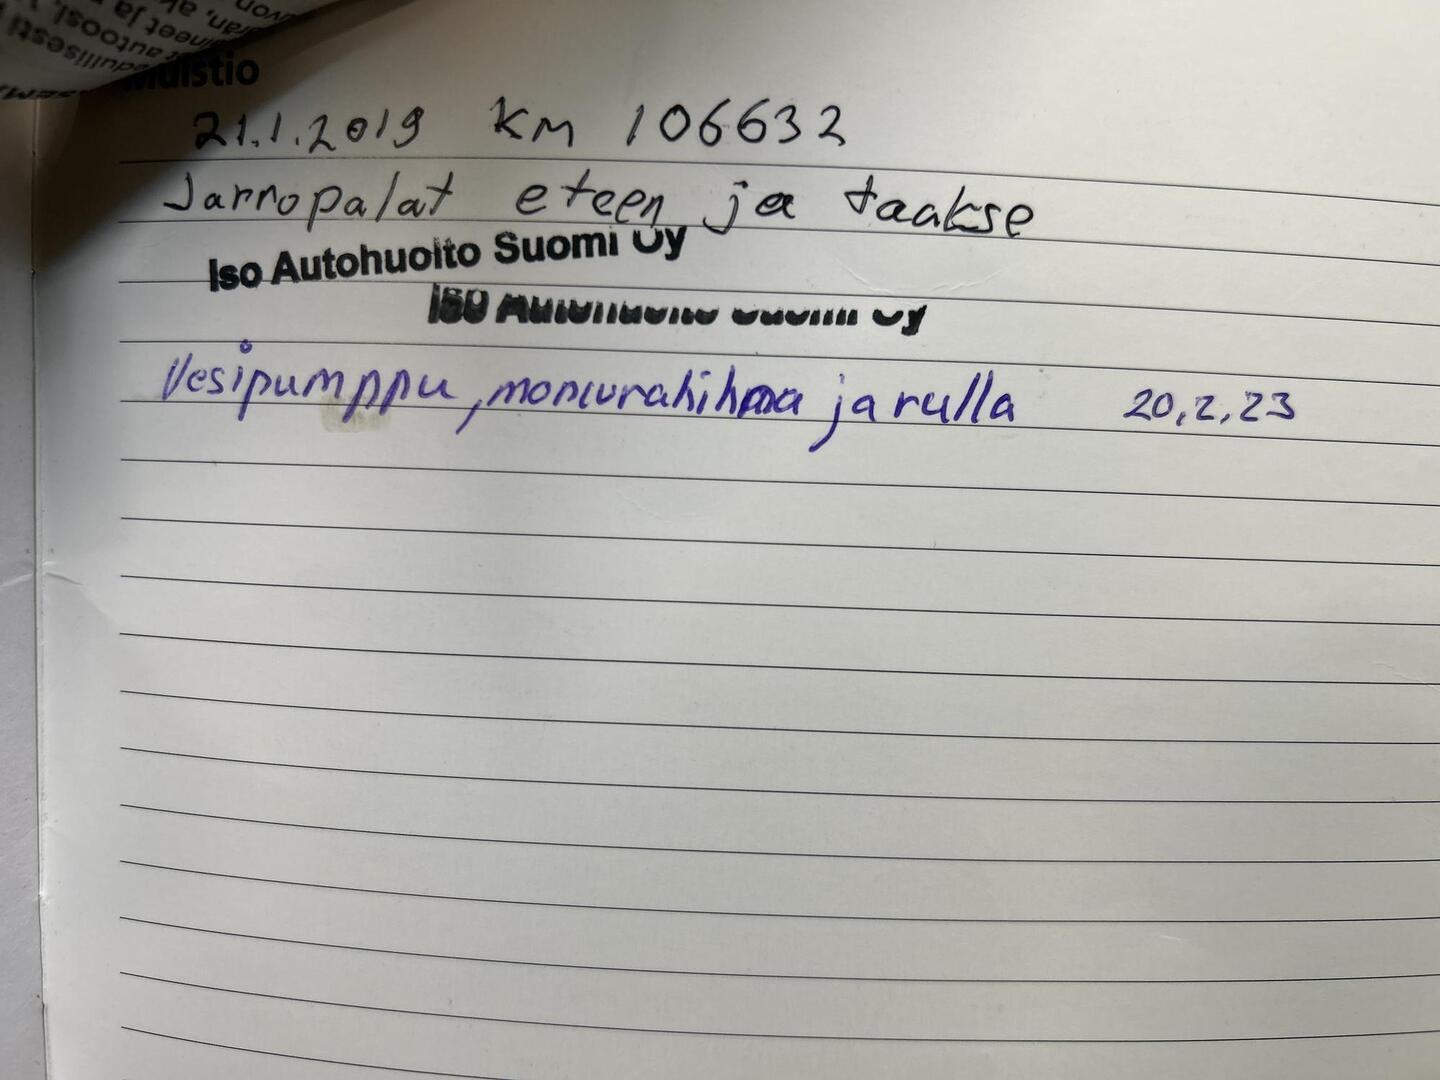 21.1.2019 KM 106632
Jarropalat eteen ja taakse
Iso Autohuolto Suomi Oy
Iso Autohuolto Suomi Oy
Vesipumppu, moniurahihna ja rulla 20.2.23